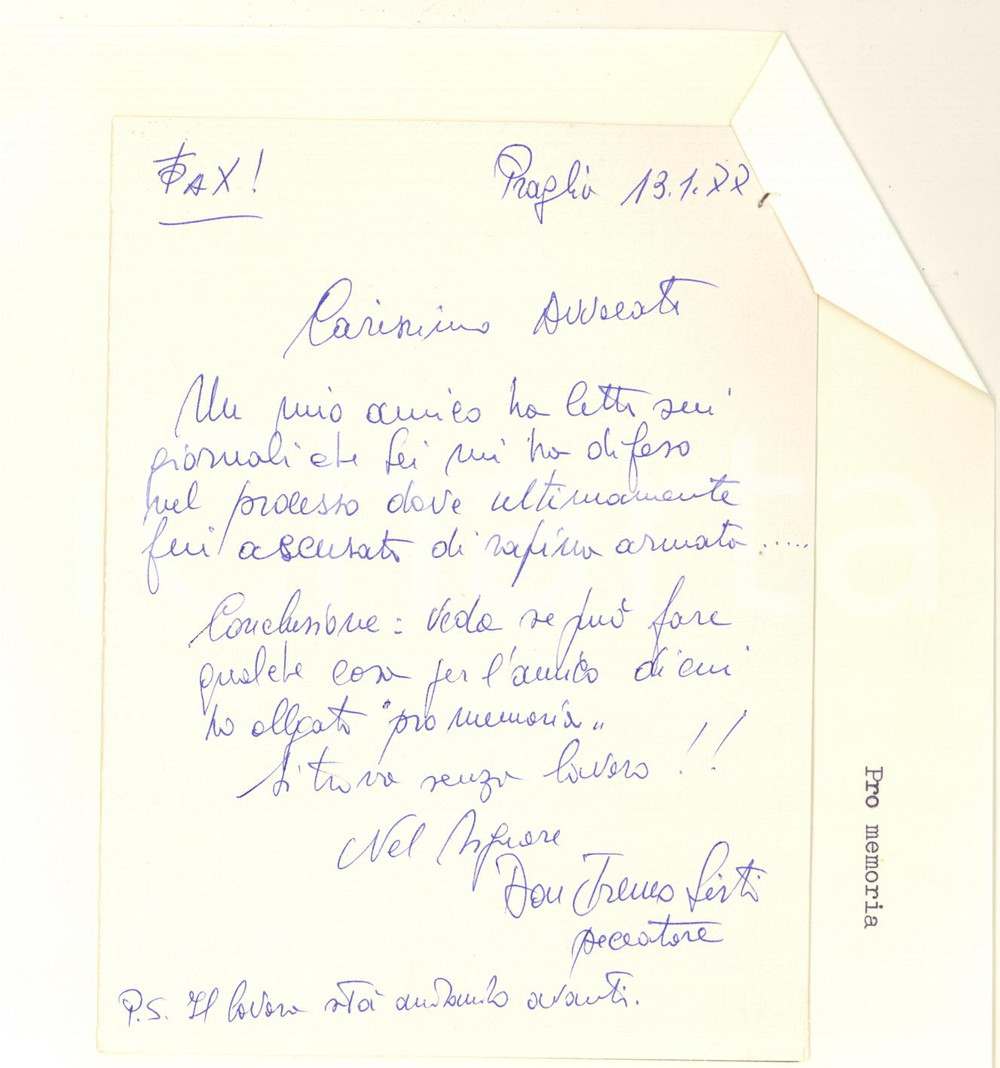 PAX!
Praglia 13.1.88
Carissimo Avvocato
Un mio amico ha letto sui
giornali che Lei mi ha difeso
nel processo dove ultimamente
fui accusato di rapina armata.....
Conclusione: veda se può fare
qualche cosa per l'amico di cui
ho allegato "pro memoria"
Si trova senza lavoro!!
Nel Signore
Don
peccatore
P.S. Il lavoro sta andando avanti.
Pro memoria